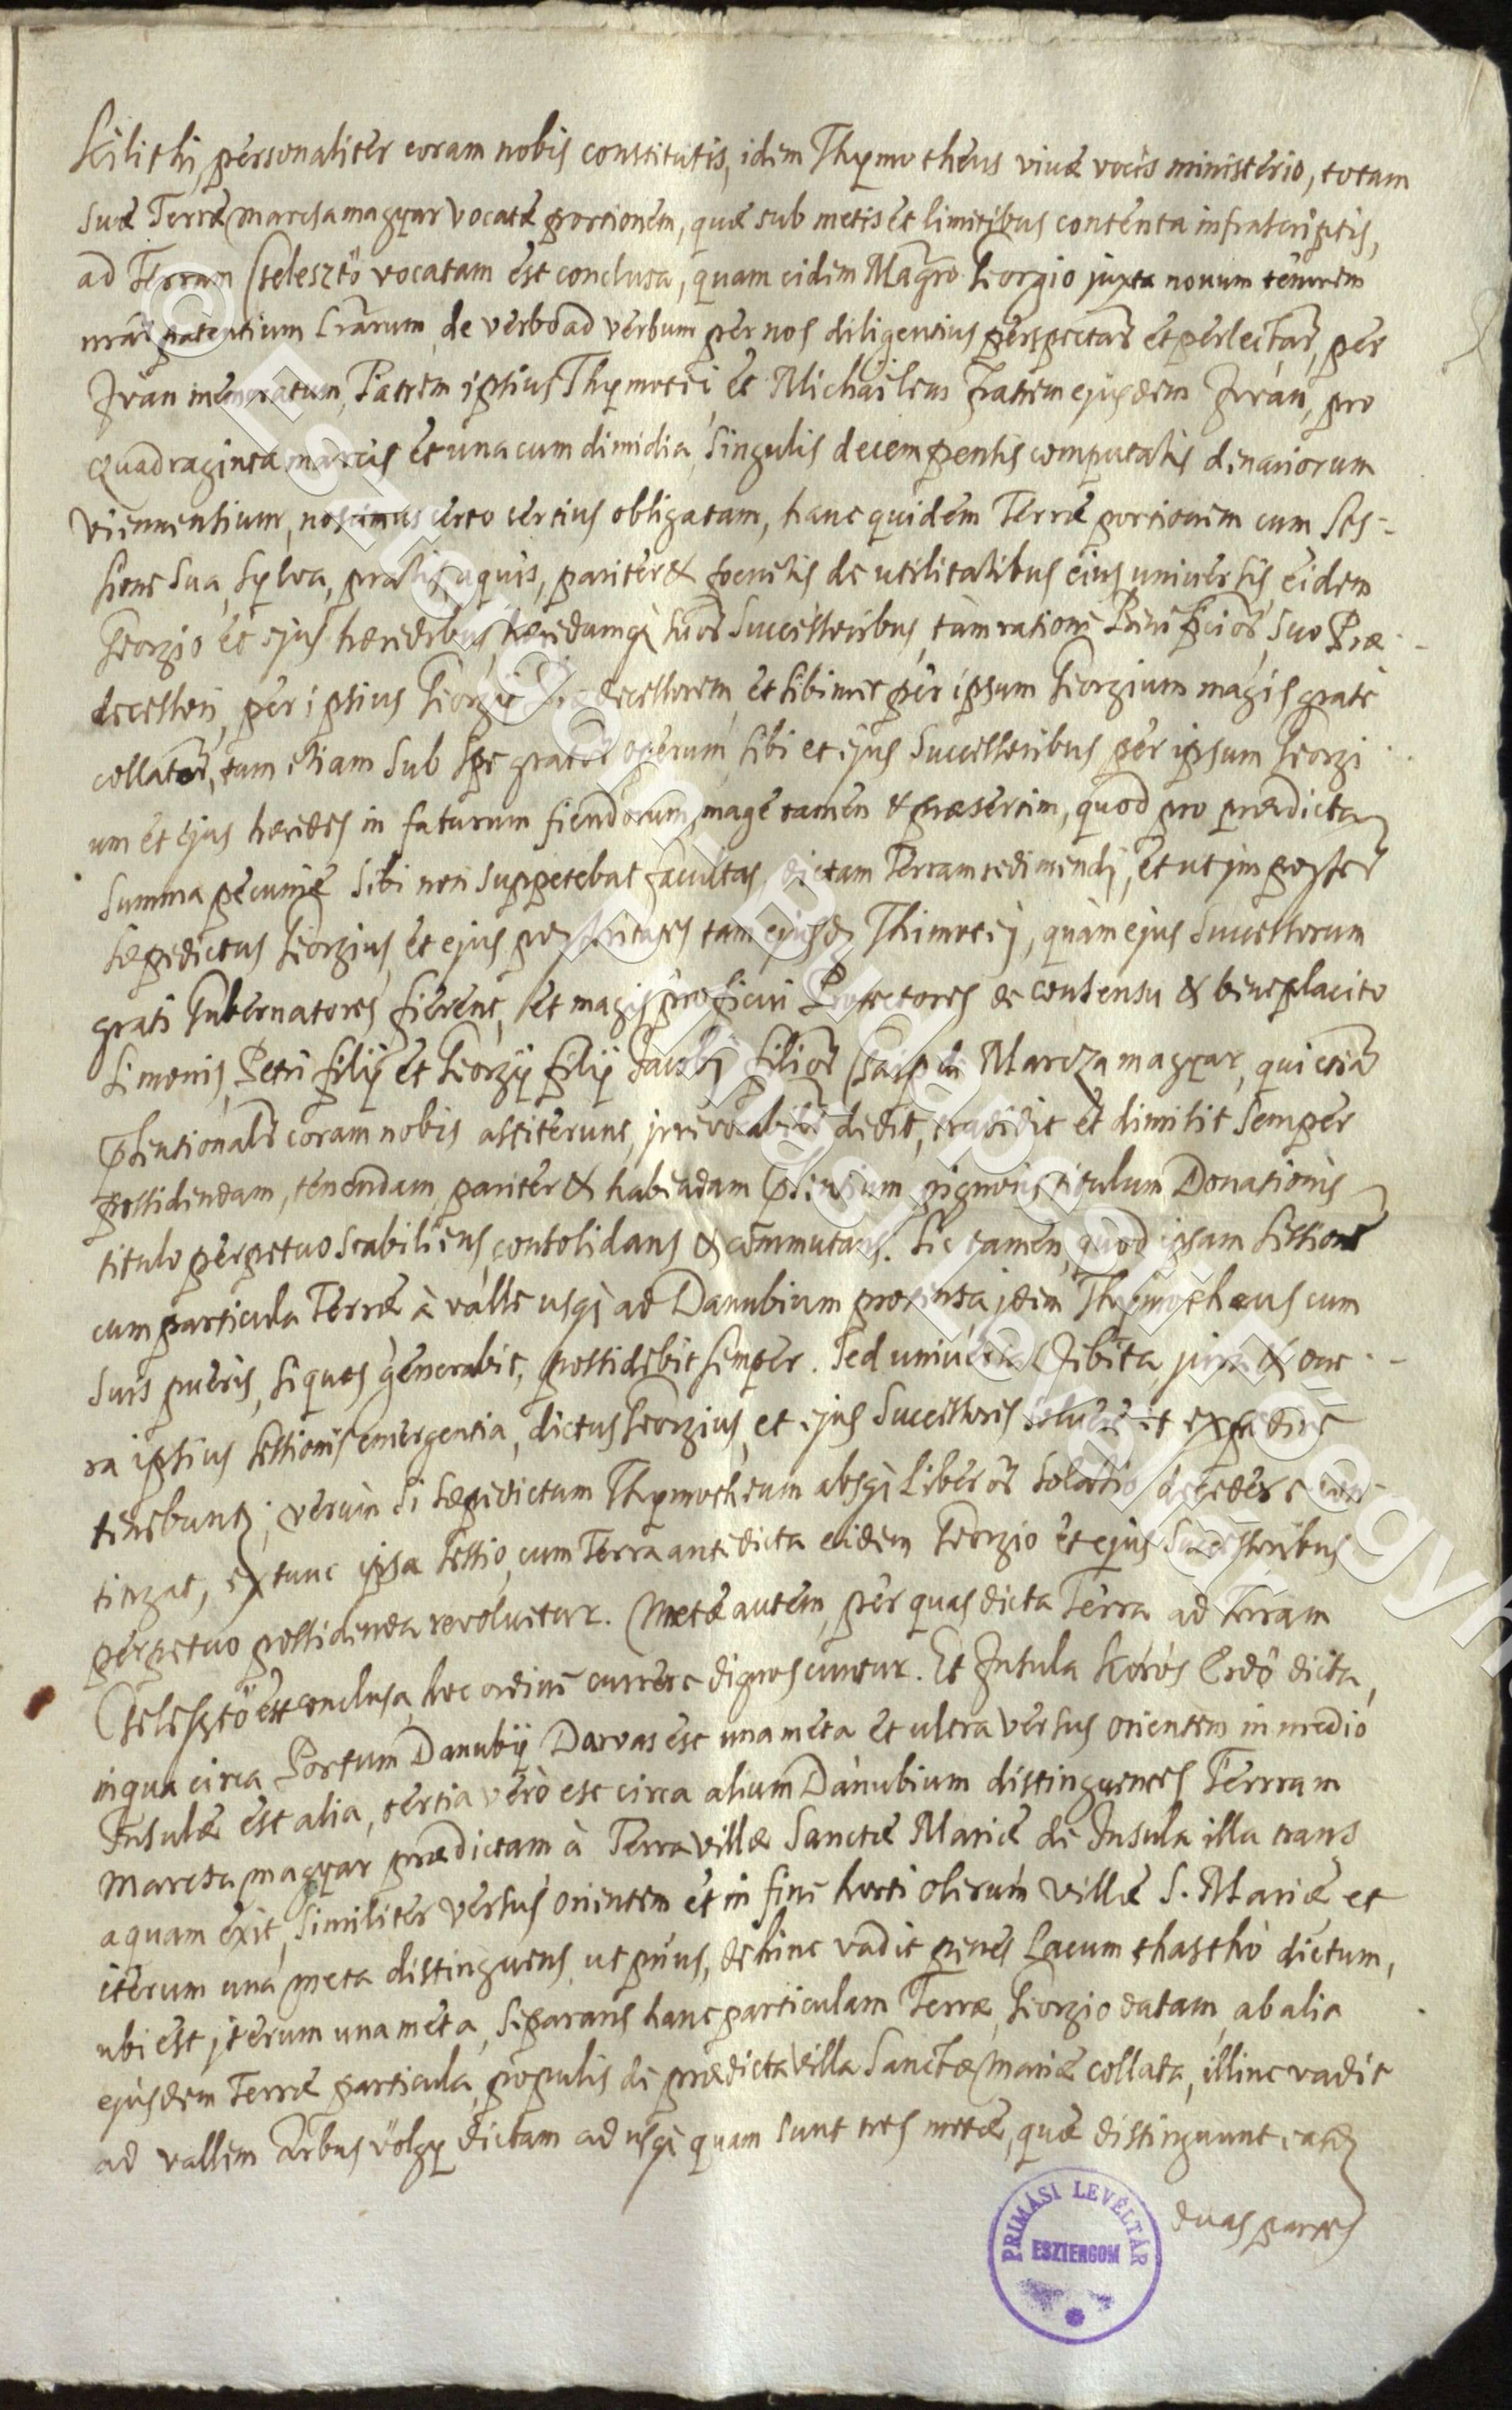 Kilithi, personaliter coram nobis constitutis, idem Thymotheus vivæ vocis ministerio, totam
suæ Terræ Marcsamagyar vocatæ portionem, quæ sub metis et limitibus contenta infrascriptis,
ad Terram Helesztö vocatam est conclusa, quam eidem Magro Georgio juxta novum tenorem
nrar patentium Lrarum, de verbo ad verbum per nos diligentius perspectar et perlectar, per
Jvan memoratum, Patrem ipsius Thymotei et Michailem fratrem ejusdem Jvan, pro
quadraginta marcis et una cum dimidia, singulis decem pensis computatis denariorum
viennensium, noscimus certo certius obligatam, hanc quidem Terræ portionem cum Ses-
sione sua, sylva, pratis, aquis, pariter & foenetis de utilitatibus ejus universis eidem
Georgio et ejus hæredibus, hæredumq3 suor Successoribus, tam ratione Beneficior, suo Præ-
decessori, per ipsius Georgii Prædecessorem, et sibimet per ipsum Georgium magis grate
collator, tum etiam sub spe grator operum, sibi et ejus Successoribus per ipsum Georgi
um et ejus hæredes in futurum fiendorum, mage tamen & præsertim, quod pro prædicta
summa pecuniæ sibi non suppetebat facultas dictam Terram redimendi, et ut jn poster
sæpedictus Georgius, et ejus posteritates tam ejusd Thimotej, quàm ejus Successorum
grati Gubernatores fierent, et magis proficui Protectores de consensu & beneplacito
Simonis, Petri filij et Georgij filij Jacobi filior de Marczamagyar, qui etia
psensionalr coram nobis astiterunt, jrrevocabilr dedit, tradidit et dimisit semper
possidendam, tenendam, pariter & habendam psensium pignoris titulum Donationis
titulo perpetuo stabiliens, consolidans & commutans. Sic tamen, quod ipsam Sessione
cum particula Terræ à valle usq3 ad Danubium protensa, jdem Thymotheus cum
suis pueris, si quos generabit, possidebit semper. Sed universa Debita, jura & one-
ra ipsius Sessionis emergentia, dictus Georgius, et ejus Successores solvere et expedire
tenebunt; verùm si sæpedictum Thymotheum absq3 Liberor solatio decedere con
tingat, extunc ipsa Sessio, cum Terra antedicta eidem Georgio et ejus Successoribus
perpetuo possidenda revolvetur. Metæ autem, per quas dicta Terra ad Terram
Helesztö est conclusa, hoc ordine currere dignoscuntur. Et Jnsula Körös Erdö dicta,
in qua circa Portum Danubij Darvas est una meta et ultra versus orientem in medio
Jnsulæ est alia, tertia verò est circa alium Danubium distinguens Terram
Marcsamagyar prædictam à Terra villæ Sanctæ Mariæ de Jnsula illa trans
aquam exit, similiter versus orientem et in fine horti olerum villæ S. Mariæ et
iterum una meta distinguens, ut prius, dehinc vadit penes Lacum thasthò dictum,
ubi est jterum una meta, separans hanc particulam Terræ, Georgio datam, ab alia
ejusdem Terræ particula, populis de prædicta villa Sanctæ Mariæ collata, illinc vadit
ad vallem Arbus völgy dictam ad usq3 quam sunt tres metæ, quæ distinguunt easd
duas partes
PRIMÁSI LEVÉLTÁR
ESZTERGOM
© Esztergom-Budapesti Főegyh
Prímási Levéltár